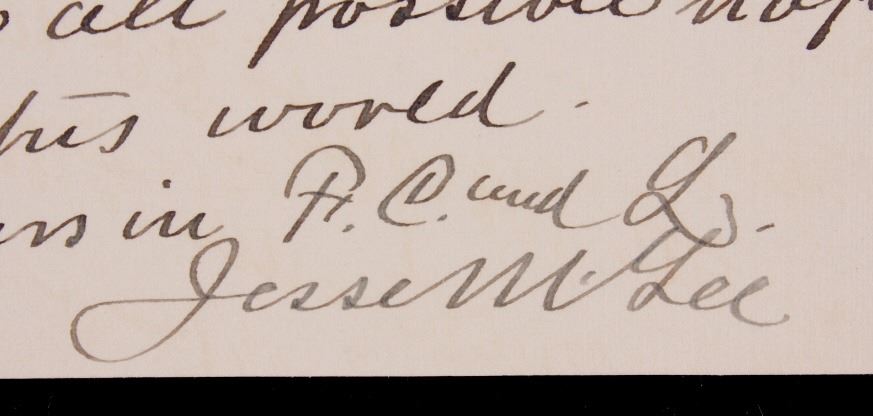 all possible hop
this world.
in F. C. and L.
Jesse M. Lee